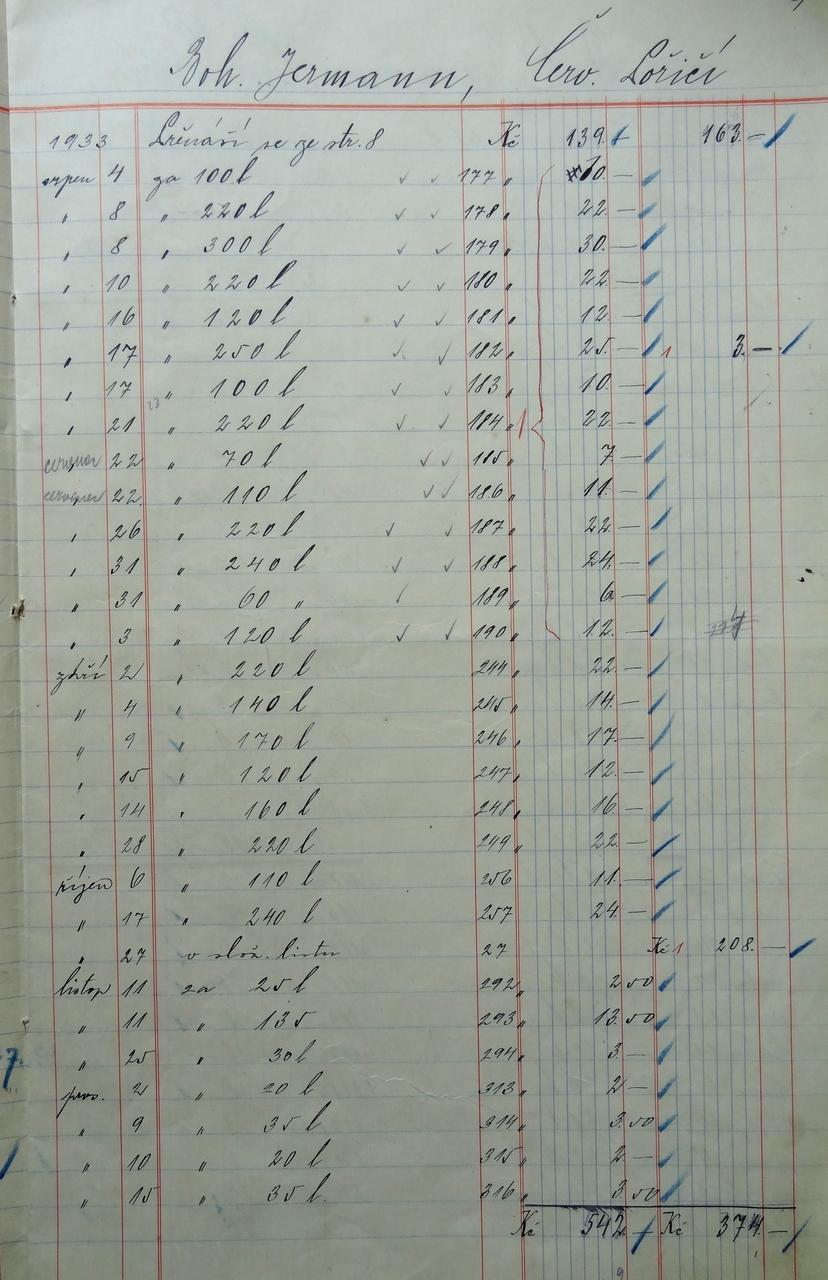 Boh. Jermann, Červ. Lořičí
1933 Přenáší se ze str. 8 Kč 139.— 163.—
srpen 4 za 100 l 177 „ 10.—
„ 8 „ 220 l 178 „ 22.—
„ 8 „ 300 l 179 „ 30.—
„ 10 „ 220 l 180 „ 22.—
„ 16 „ 120 l 181 „ 12.—
„ 17 „ 250 l 182 „ 25.— 1 3.—
„ 17 „ 100 l 183 „ 10.—
„ 21 „ 220 l 184 „ 22.—
červenec 22 „ 70 l 185 „ 7.—
červenec 22. „ 110 l 186 „ 11.—
„ 26 „ 220 l 187 „ 22.—
„ 31 „ 240 l 188 „ 24.—
„ 31 „ 60 „ 189 „ 6.—
„ 3 „ 120 l 190 „ 12.—
září 2 „ 220 l 244 „ 22.—
„ 4 „ 140 l 245 „ 14.—
„ 9 „ 170 l 246 „ 17.—
„ 15 „ 120 l 247 „ 12.—
„ 14 „ 160 l 248 „ 16.—
„ 28 „ 220 l 249 „ 22.—
říjen 6 „ 110 l 256 11.—
„ 17 „ 240 l 257 24.—
„ 27 v slož. listu 27 Kč 1 208.—
listop 11 za 25 l 292 „ 2 50
„ 11 „ 135 293 „ 13.50
„ 25 „ 30 l 294 „ 3.—
pros. 2 „ 20 l 313 „ 2.—
„ 9 „ 35 l 314 „ 3.50
„ 10 „ 20 l 315 „ 2.—
„ 15 „ 35 l. 316 „ 3 50
Kč 542.— Kč 374.—